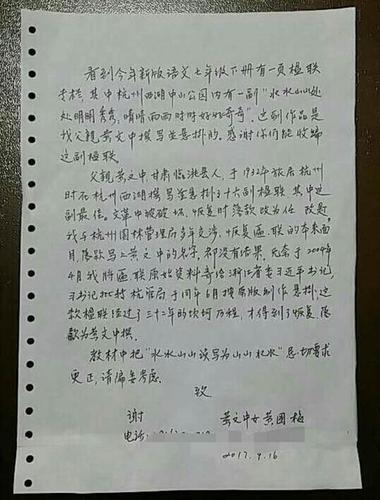 看到今年新版语文七年级下册有一页楹联
专栏，其中杭州西湖中山公园内有一副“水水山山处
处明明秀秀，晴晴雨雨时时好好奇奇”。这副作品是
我父亲黄文中撰写并悬挂的，感谢你们能收归
这副楹联。
父亲黄文中甘肃临洮县人，于1932年旅居杭州
时在杭州西湖撰写并悬挂了十六副楹联其中这
副最佳。文革中被破坏，恢复时落款改为任
我与杭州园林管理局多年交涉，恢复匾联的本来面
目，落款写上黄文中的名字，都没有结果。无奈于2004年
4月我将匾联原始资料寄给浙江省委习近平书记，
习书记批转杭管局于同年6月按原版制作悬挂，这
款楹联经过了三十二年的坎坷历程，才得到了恢复，落
款为黄文中撰。
教材中把“水水山山误写为山山水水”恳切要求
更正，请编委考虑。
致
谢 黄文中女黄国梅
电话：
2017.9.16